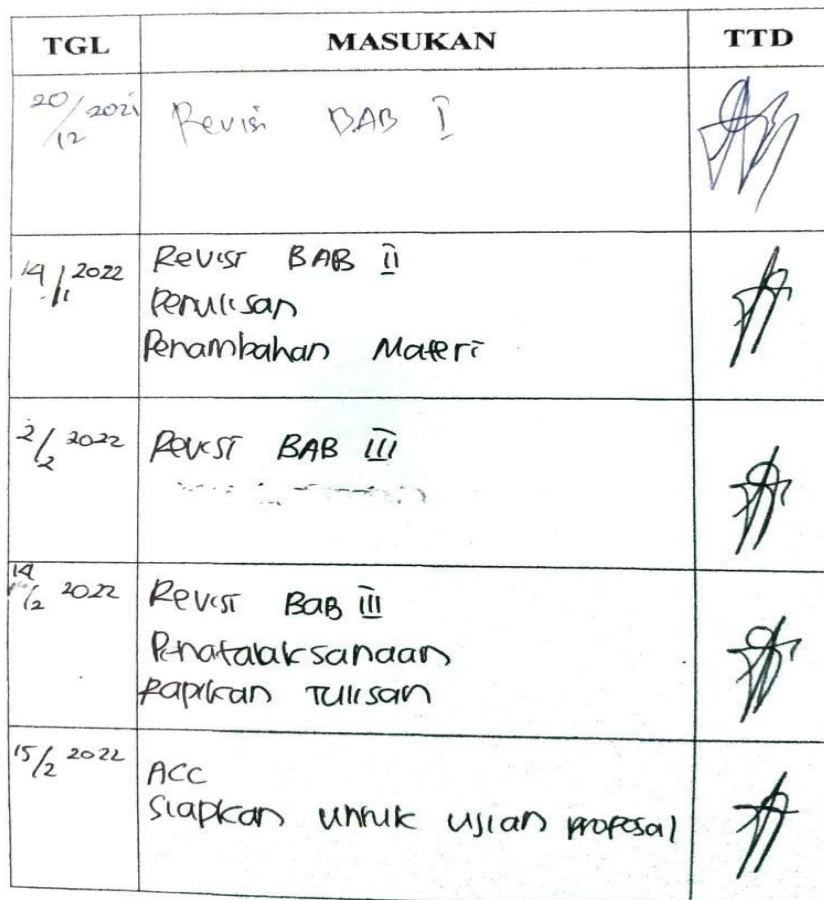 TGL MASUKAN TTD
20/12 2021 Revisi BAB I
14/1 2022 Revisi BAB II
Penulisan
Penambahan Materi
2/2 2022 Revisi BAB III
14/2 2022 Revisi BAB III
Penatalaksanaan
Rapikan Tulisan
15/2 2022 ACC
Siapkan untuk ujian proposal